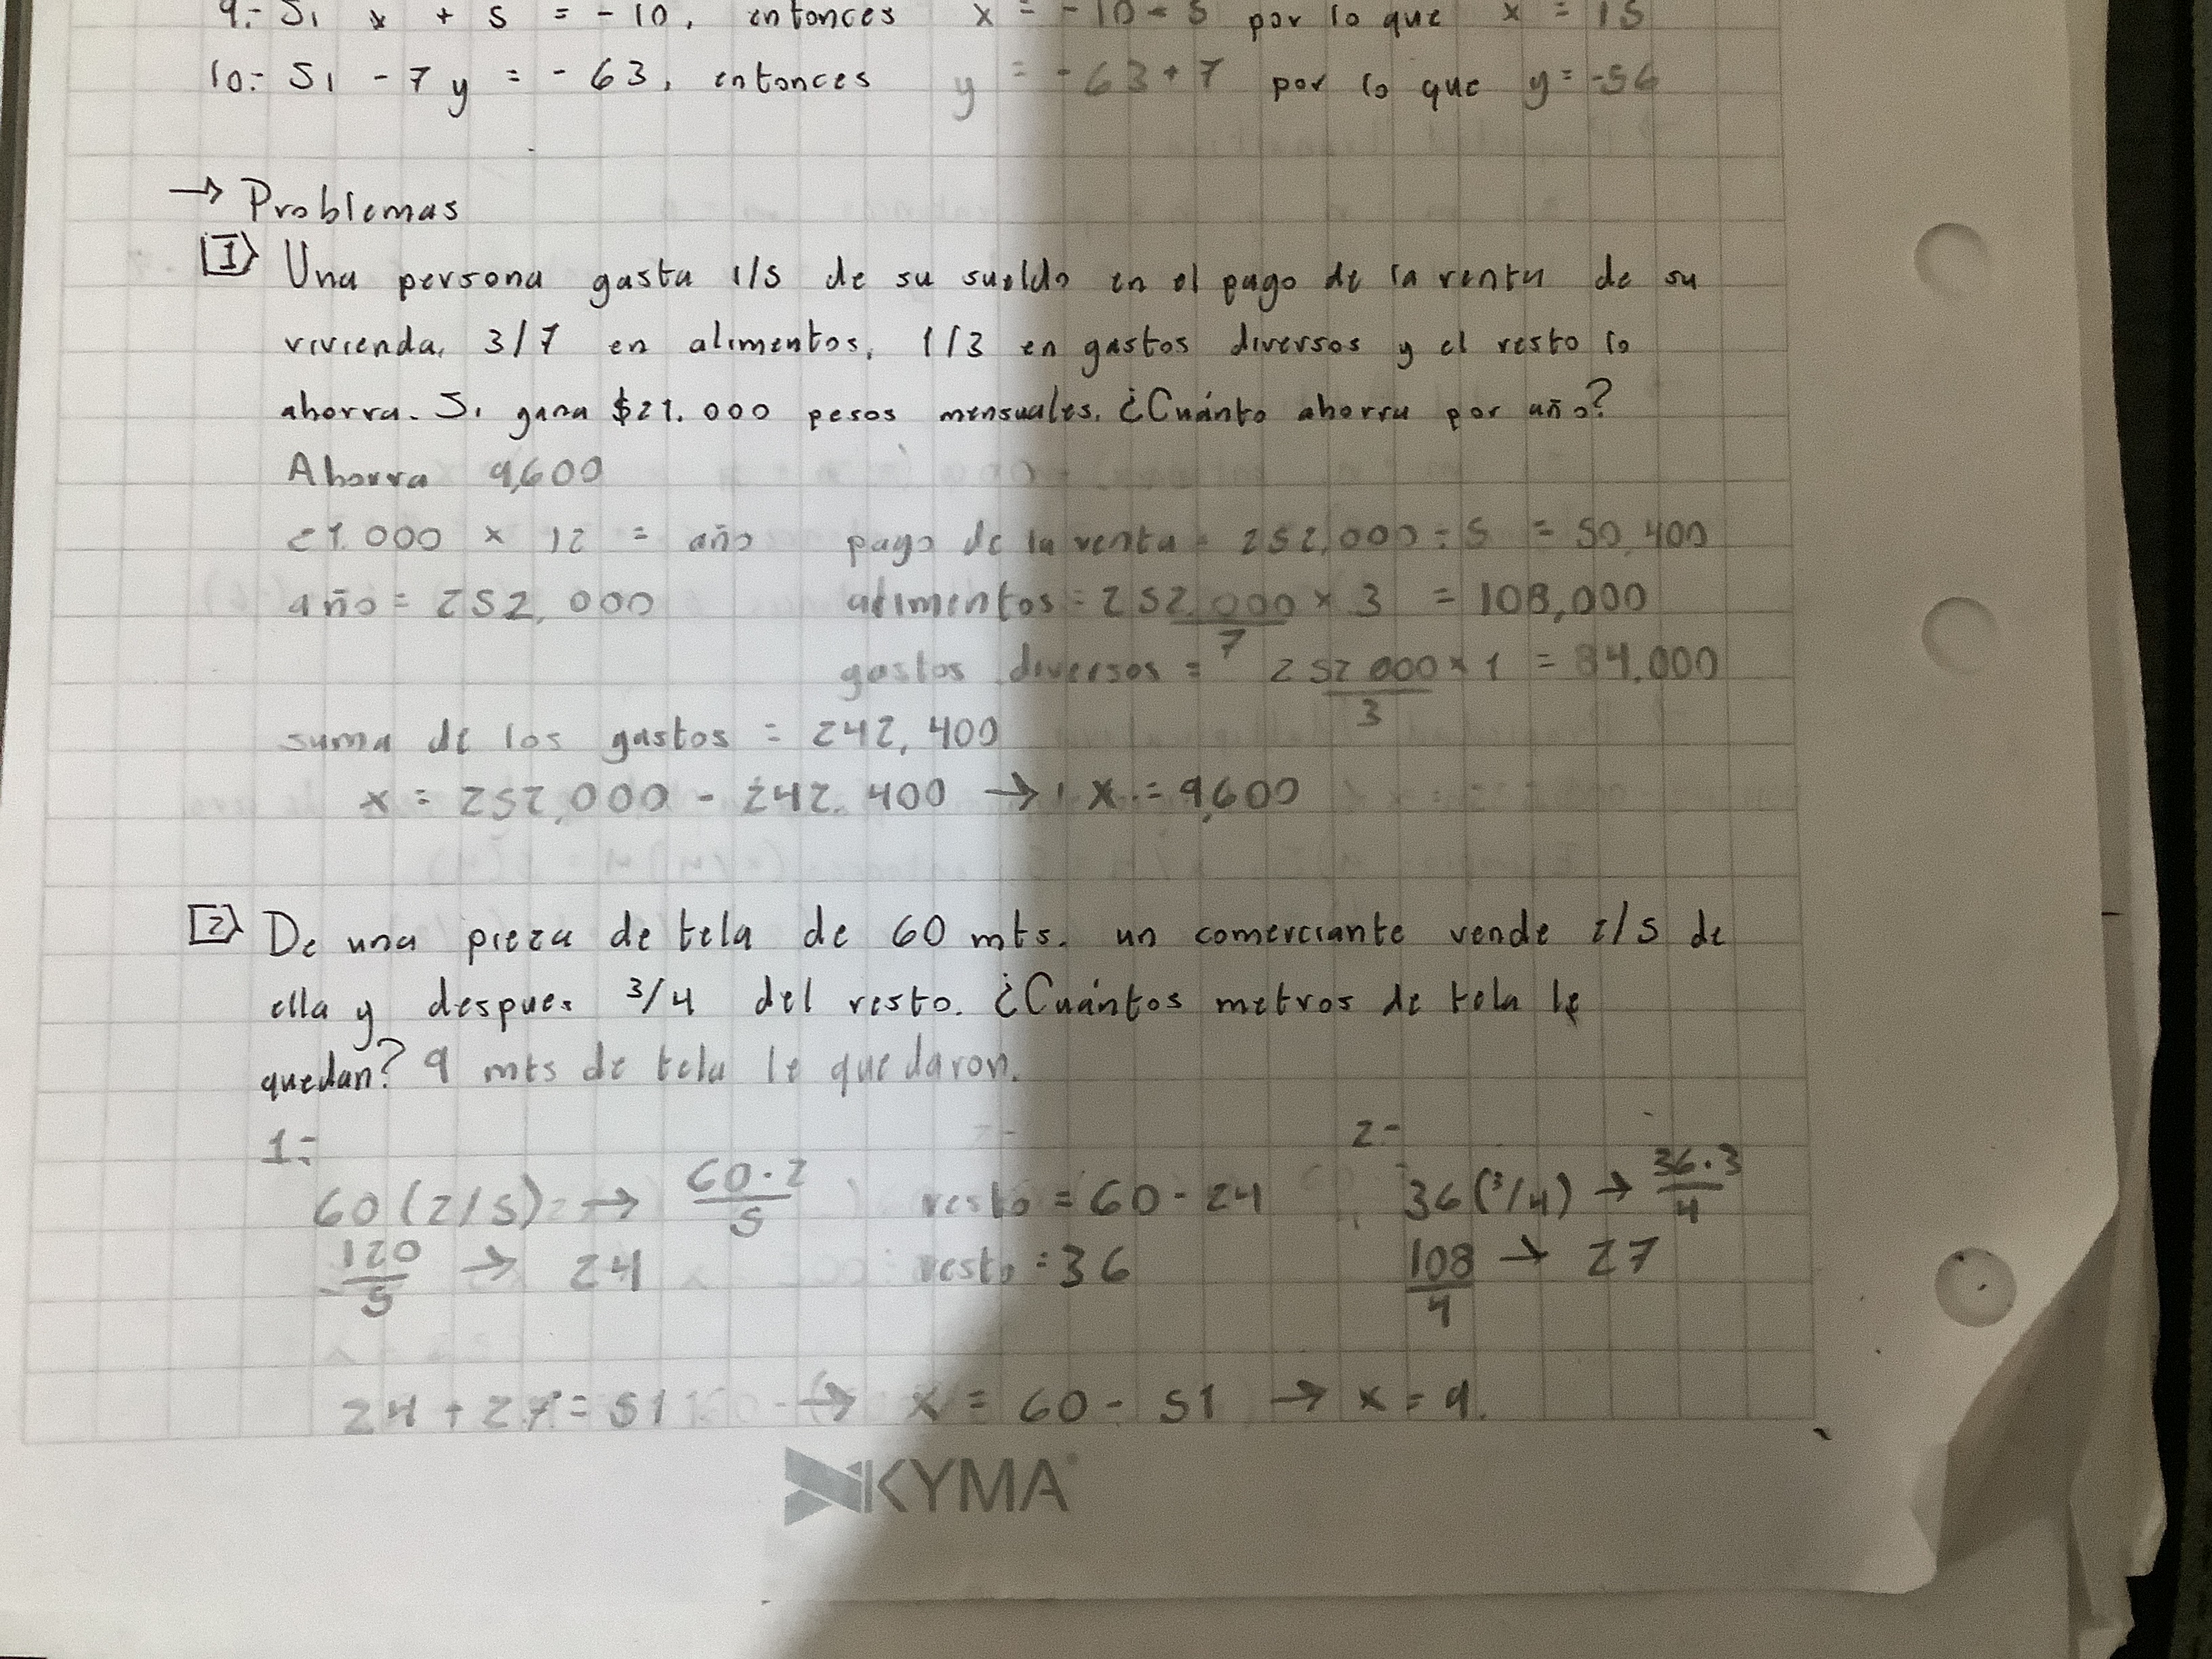 9.- Si x + 5 = -10, entonces x = -10 - 5 por lo que x = 15
10.- Si -7y = -63, entonces y = -63+7 por lo que y = -56
→ Problemas
1 Una persona gasta 1/5 de su sueldo en el pago de la renta de su
vivienda, 3/7 en alimentos, 1/3 en gastos diversos y el resto lo
ahorra. Si gana $21.000 pesos mensuales. ¿Cuánto ahorra por año?
Ahorra 9,600
21.000 x 12 = año pago de la renta = 252,000 ÷ 5 = 50,400
año = 252,000 alimentos = 252,000/7 x 3 = 108,000
gastos diversos = 252000/3 x 1 = 84.000
suma de los gastos = 242,400
x = 252,000 - 242.400 → x = 9,600
2 De una pieza de tela de 60 mts. un comerciante vende 2/5 de
ella y despues 3/4 del resto. ¿Cuántos metros de tela le
quedan? 9 mts de tela le quedaron.
1.- 2.-
60(2/5) → 60·2/5 resto = 60 - 24 36(3/4) → 36·3/4
120/5 → 24 resto = 36 108/4 → 27
24 + 27 = 51 → x = 60 - 51 → x = 9.
KYMA